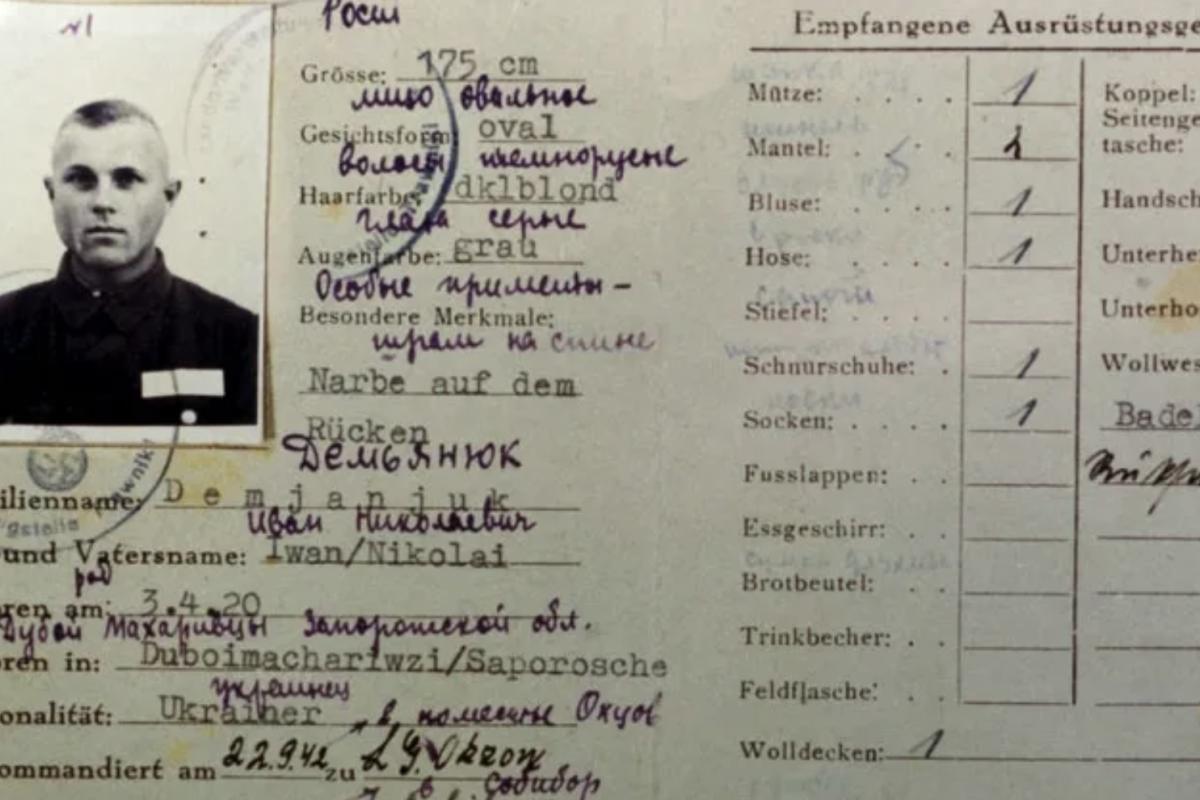 Росии
Grösse: 175 cm
лицо овальное
Gesichtsform: oval
волосы темнорусые
Haarfarbe: dklblond
глаза серые
Augenfarbe: grau
Особые приметы -
Besondere Merkmale:
шрам на спине
Narbe auf dem
Rücken
ДЕМЬЯНЮК
ilienname: Demjanjuk
Иван Николаевич
und Vatersname: Iwan/Nikolai
род
ren am: 3.4.20
Дубой Махаривцы Запорожской обл.
ren in: Duboimachariwzi/Saporosche
украинец
onalität: Ukrainer
в поместье Окцов
ommandiert am 22.9.42 zu L.G. Okzow
в Собибор
Empfangene Ausrüstungsge
Mütze: 1
Mantel: 1
Bluse: 1
Hose: 1
Stiefel:
Schnurschuhe: 1
Socken: 1
Fusslappen:
Essgeschirr:
Brotbeutel:
Trinkbecher:
Feldflasche:
Wolldecken: 1
Koppel:
Seitenge
tasche:
Handsch
Unterhe
Unterho
Wollwes
Bade